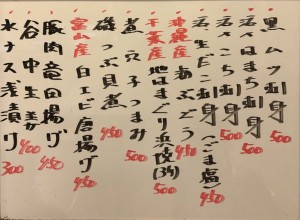 黒ムツ刺身 500
活〆はまち刺身 500
活〆こち刺身 500
生だこ刺身(ごま塩) 450
沖縄産 海ぶどう 450
千葉産 地はまぐり浜焼(3ケ) 500
煮穴子つまみ 500
磯つぶ貝煮 450
富山産 白エビ唐揚げ 450
豚肉竜田揚げ 450
谷中生姜 400
水ナス浅漬け 300